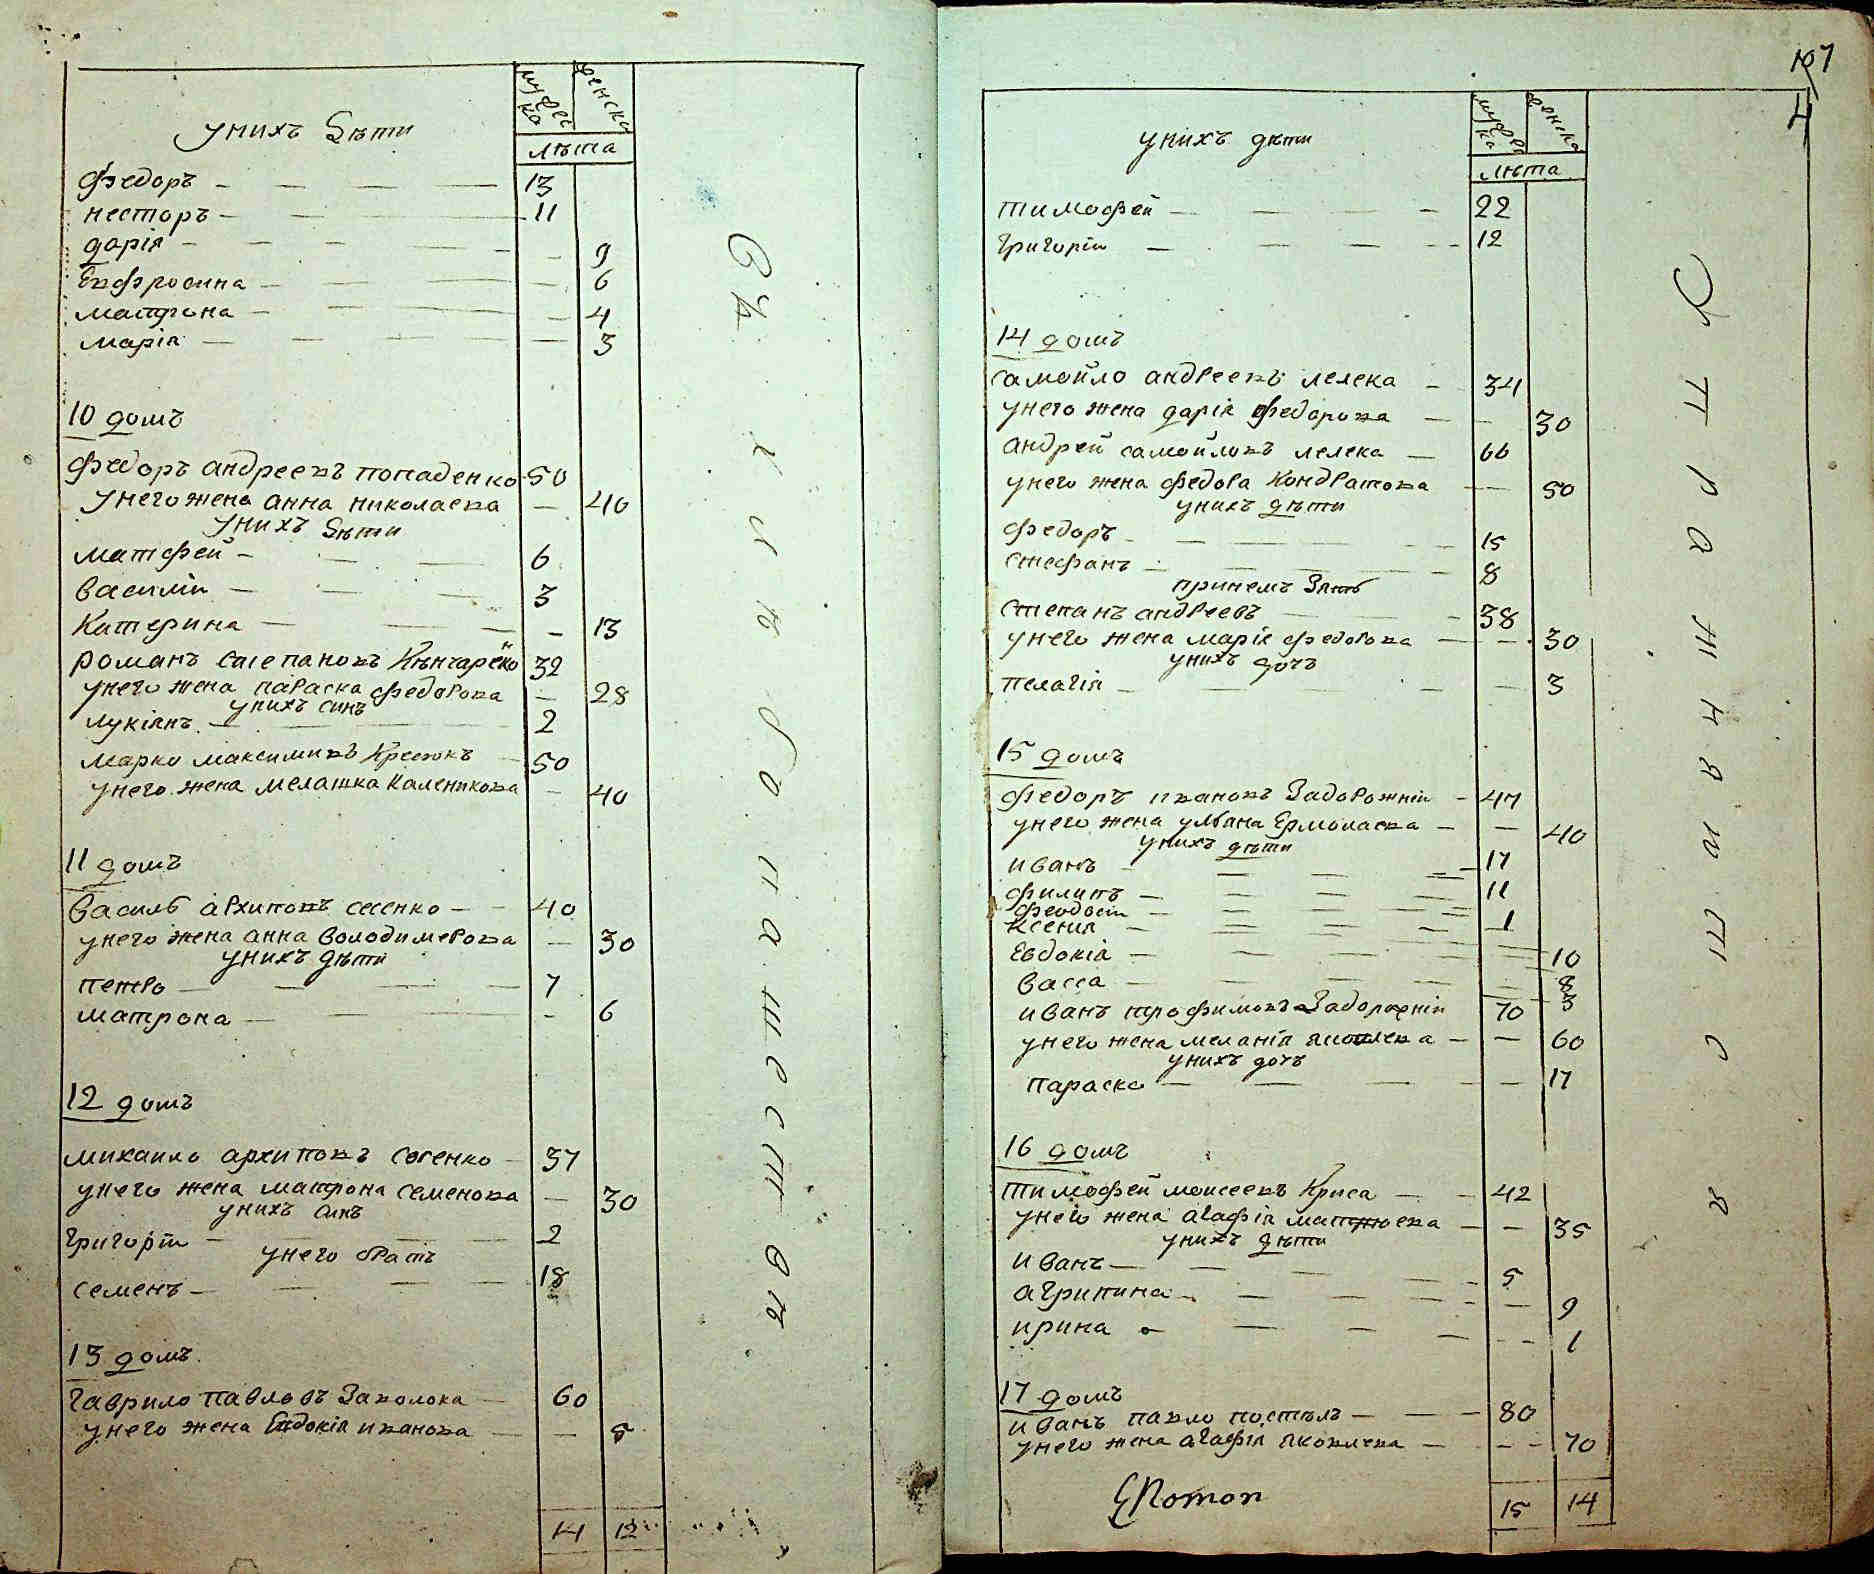 унихъ дѣти
мужеска
женска
лѣта
федоръ 13
несторъ 11
дарія 9
Евфросина 6
матрона 4
марія 3
10 домъ
федоръ андреевъ попаденко 50
унего жена анна николаева 40
унихъ дѣти
матфей 6
василій 3
катерина 13
романъ степановъ 32
унего жена параска федорова 28
унихъ синъ
лукіянъ 2
марко максимивъ 50
унего жена мелашка каленикова 40
11 домъ
василь архиповъ 40
унего жена анна володимерова 30
унихъ дѣти
петро 7
матрона 6
12 домъ
михаило архиповъ 37
унего жена матрона семенова 30
унихъ синъ
григорій 2
унего братъ
семенъ 18
13 домъ
гаврило павловъ Заволока 60
унего жена Евдокія иванова
14 12
107
4
унихъ дѣти
мужеска
женска
лѣта
тимофей 22
григорій 12
14 домъ
самойло андреевъ лелека 34
унего жена дарія федорова 30
андрей самойловъ лелека 66
унего жена федора Кондратова 50
унихъ дѣти
федоръ 15
стефанъ 8
принемъ Зять
степанъ андреевъ 38
унего жена марія федорова 30
унихъ дочъ
пелагія 3
15 домъ
федоръ ивановъ Задорожній 47
унего жена уляна Ермолаева 40
унихъ дѣти
иванъ 17
филипъ 11
феодосій 1
ксенія
Евдокія 10
васса 8
3
иванъ трофимовъ Задорожній 70
унего жена меланія яковлева 60
унихъ дочъ
параска 17
16 домъ
тимофей моисеевъ Криса 42
унего жена агафія матфиева 35
унихъ дѣти
иванъ 5
агрипина 9
ирина 1
17 домъ
иванъ павло 80
унего жена агафія яковлева 70
15 14